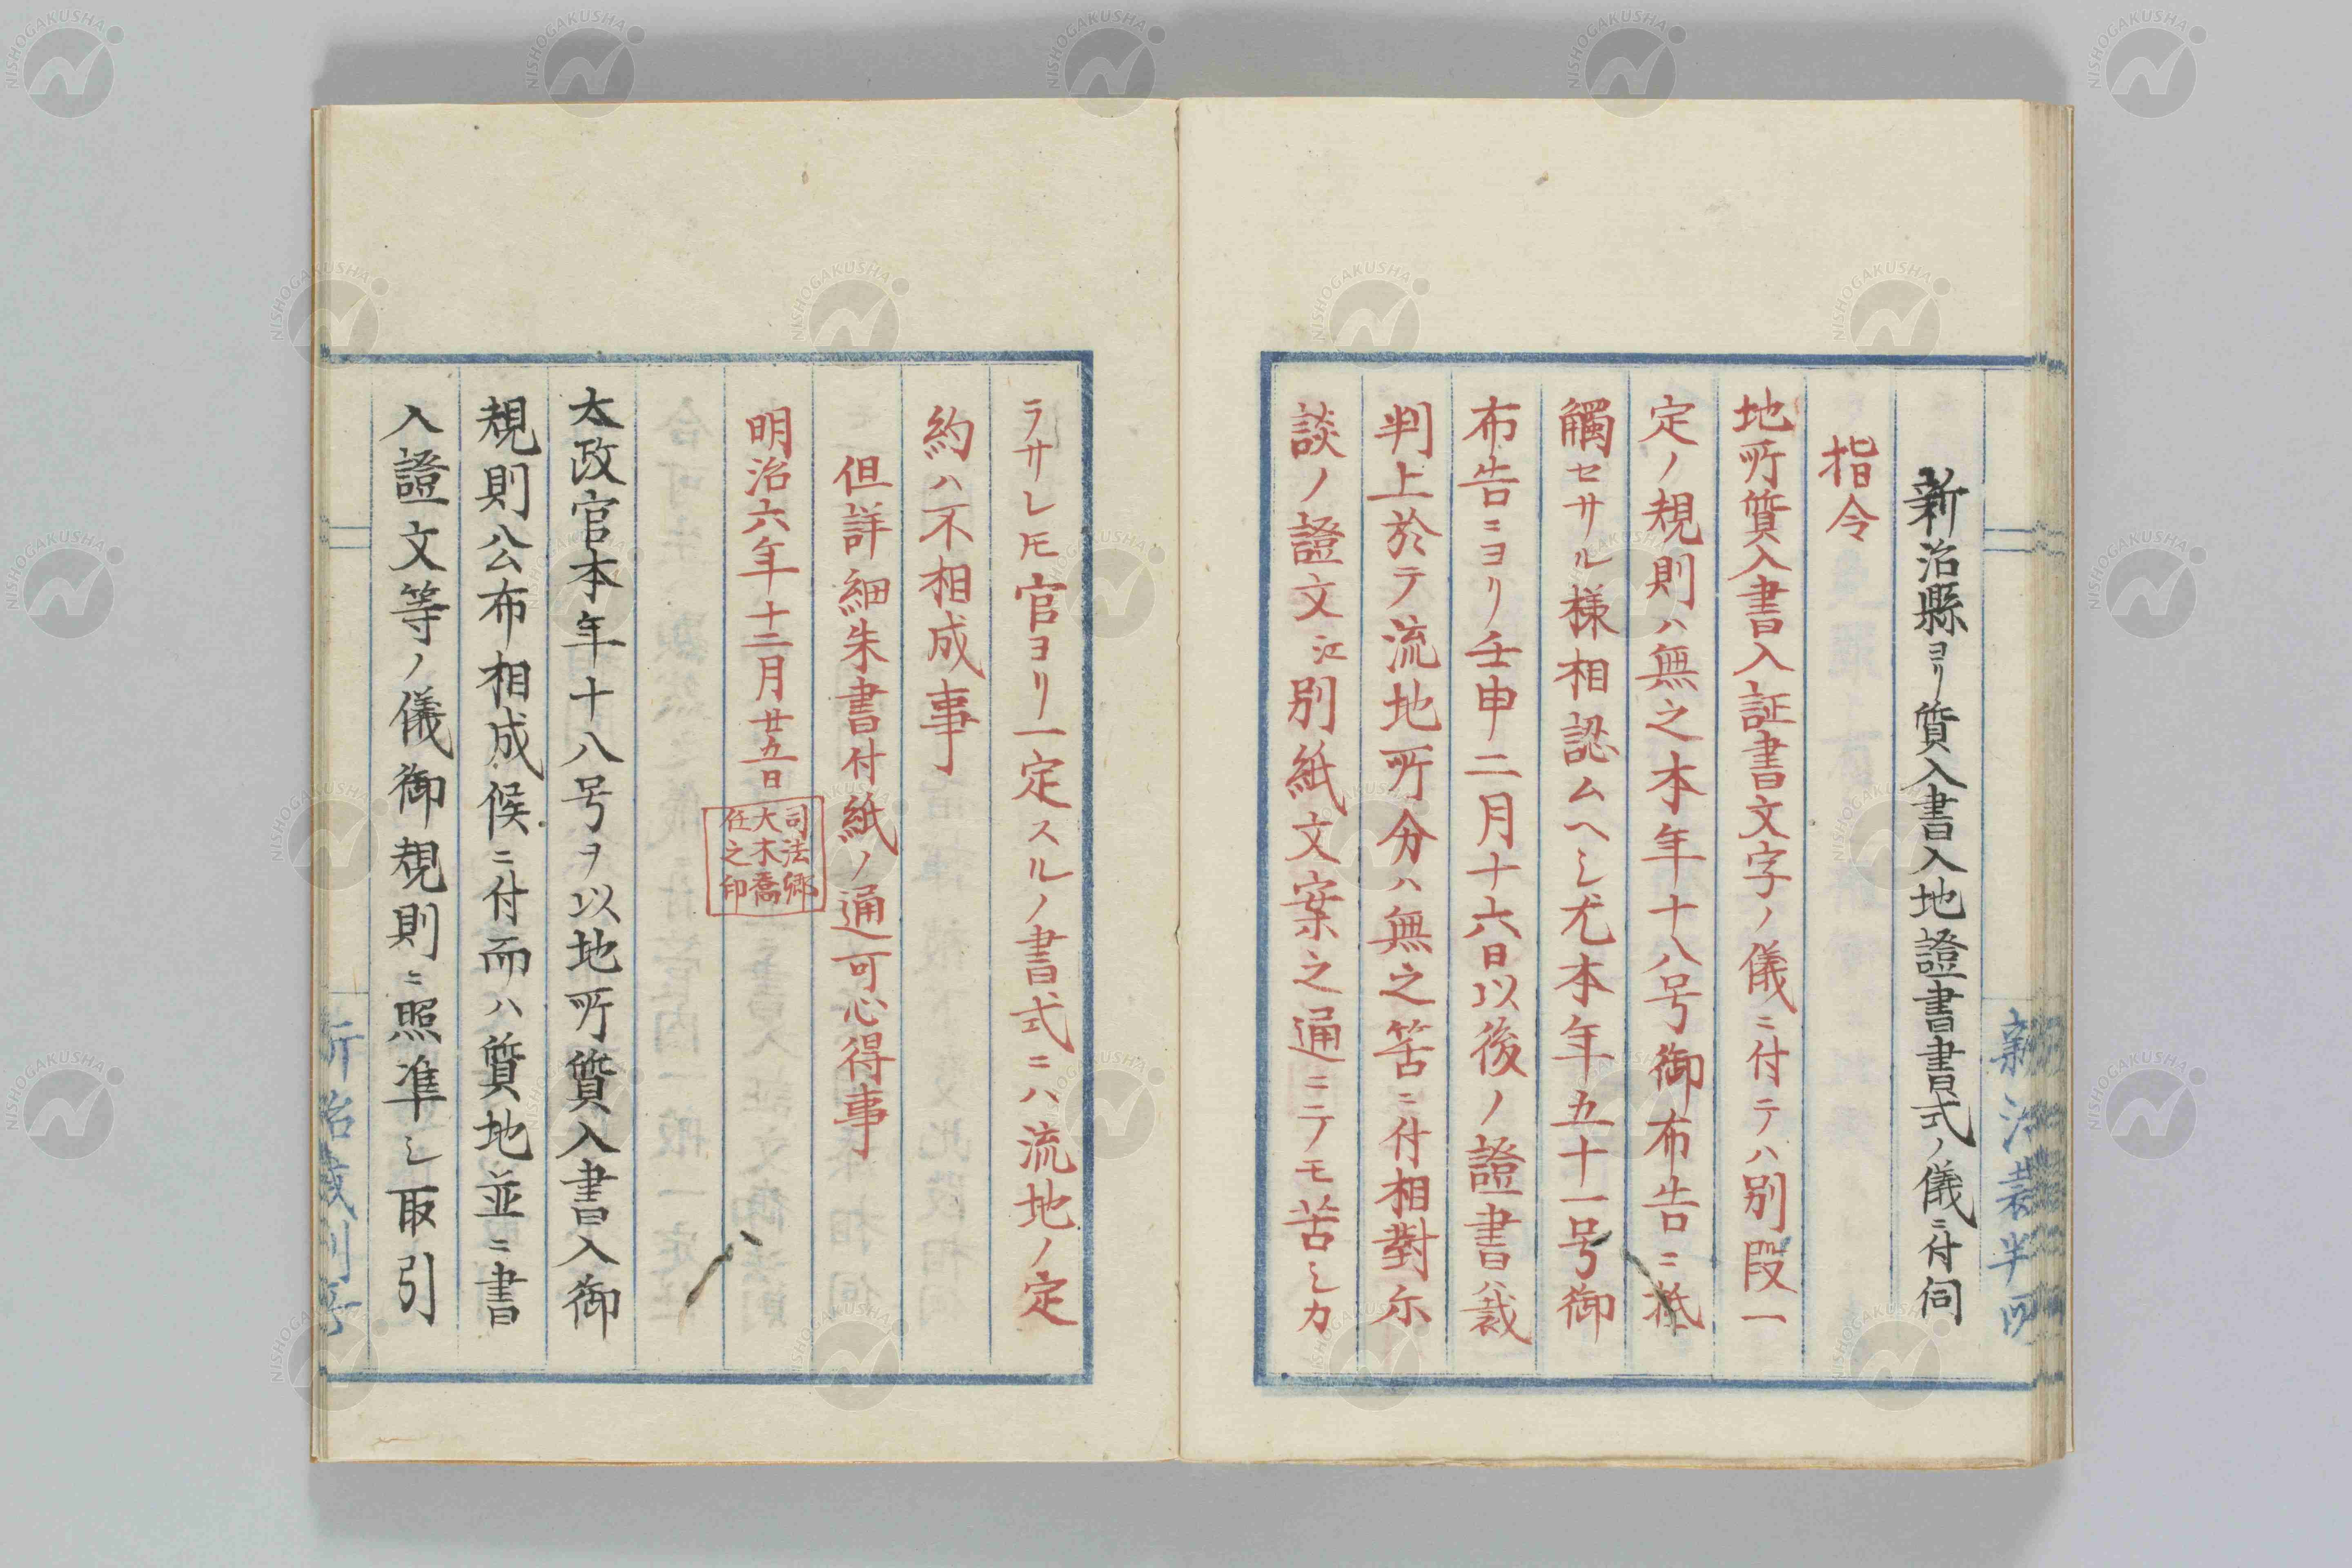 新治縣ヨリ質入書入地證書書式ノ儀ニ付伺
指令
地所質入書入証書文字ノ儀ニ付テハ別段一
定ノ規則ハ無之本年十八号御布告ニ抵
觸セサル様相認ムヘシ尤本年五十一号御
布告ニヨリ壬申二月十六日以後ノ證書ハ裁
判上於テ流地所分ハ無之筈ニ付相對示
談ノ證文江別紙文案之通ニテモ苦シカ
ラサレ𪜈官ヨリ一定スルノ書式ニハ流地ノ定
約ハ不相成事
但詳細朱書付紙ノ通可心得事
明治六年十二月廿五日
司法卿
大木喬
任之印
太政官本年十八号ヲ以地所質入書入御
規則公布相成候ニ付而ハ質地並ニ書
入證文等ノ儀御規則ニ照準シ取引
NISHOGAKUSHA